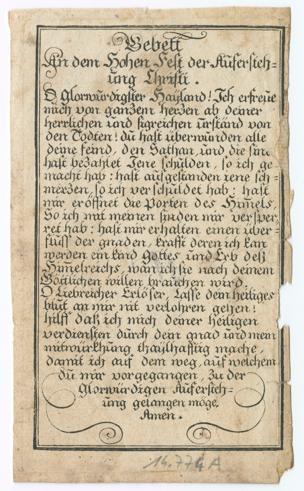 Gebett
An dem Hohen Fest der Aufersteh=
ung Christi.
O Glorwürdigster Hayland! Ich erfreüe
mich von ganzem herzen ab deiner
herrlichen und sigreichen urständ von
den Todten! du hast überwunden alle
deine feind, den Sathan, und die sind
hast bezahlet Jene schulden, so ich ge
macht hab: hast ausgestanden iene sch=
merzen, so ich verschuldet hab: hast
mir eröffnet die Porten des Himels,
So ich mit meinen sinden mir versper
ret hab: hast mir erhalten einen über=
fluss der gnaden, krafft deren ich kan
werden ein kind Gottes, und Erb deß
Himelreichs, wan ich sie nach deinem
Göttlichen willen brauchen wird.
O Liebreicher Erlöser, Lasse dein heiliges
blut an mir nit verlohren gehen!
hilff daß ich mich deiner heiligen
verdiensten durch dein gnad und mein
mitwürkhung thaylhafftig mache,
damit ich auf dem weg, auf welchem
du mir vorgegangen, zu der
Glorwürdigen Aufersteh=
ung gelangen möge.
Amen.
14.774A